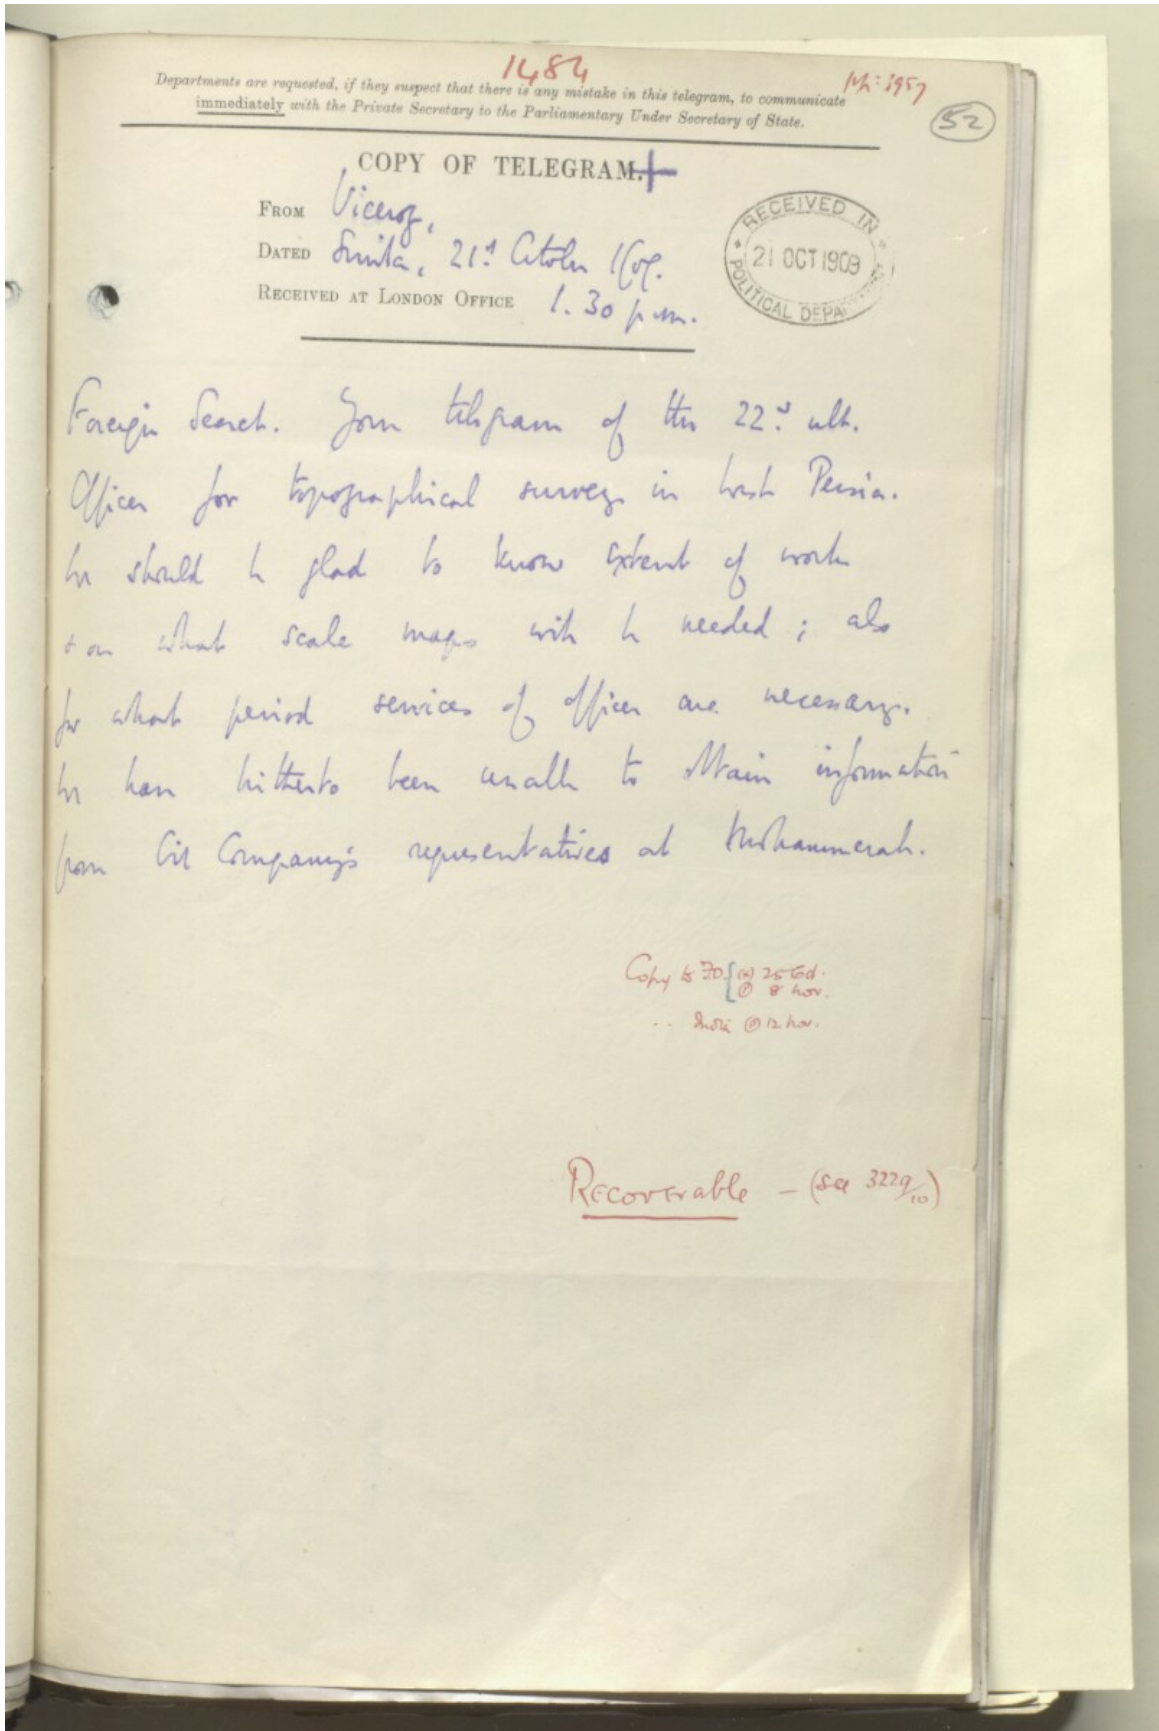 1484
Departments are requested, if they suspect that there is any mistake in this telegram, to communicate
immediately with the Private Secretary to the Parliamentary Under Secretary of State.
52
COPY OF TELEGRAM.
FROM Viceroy,
DATED Simla, 21st October 1909.
RECEIVED AT LONDON OFFICE 1.30 p.m.
RECEIVED IN
21 OCT 1909
POLITICAL DEPA
Foreign Secret. Your telegram of the 22nd ult.
Officer for topographical survey in West Persia.
We should be glad to know extent of work
& on what scale maps will be needed; also
for what period services of officer are necessary.
We have hitherto been unable to obtain information
from Oil Company's representatives at Mohammerah.
Copy to FO. 25 Oct.
8 Nov.
India 12 Nov.
Recoverable – (see 3229/10)